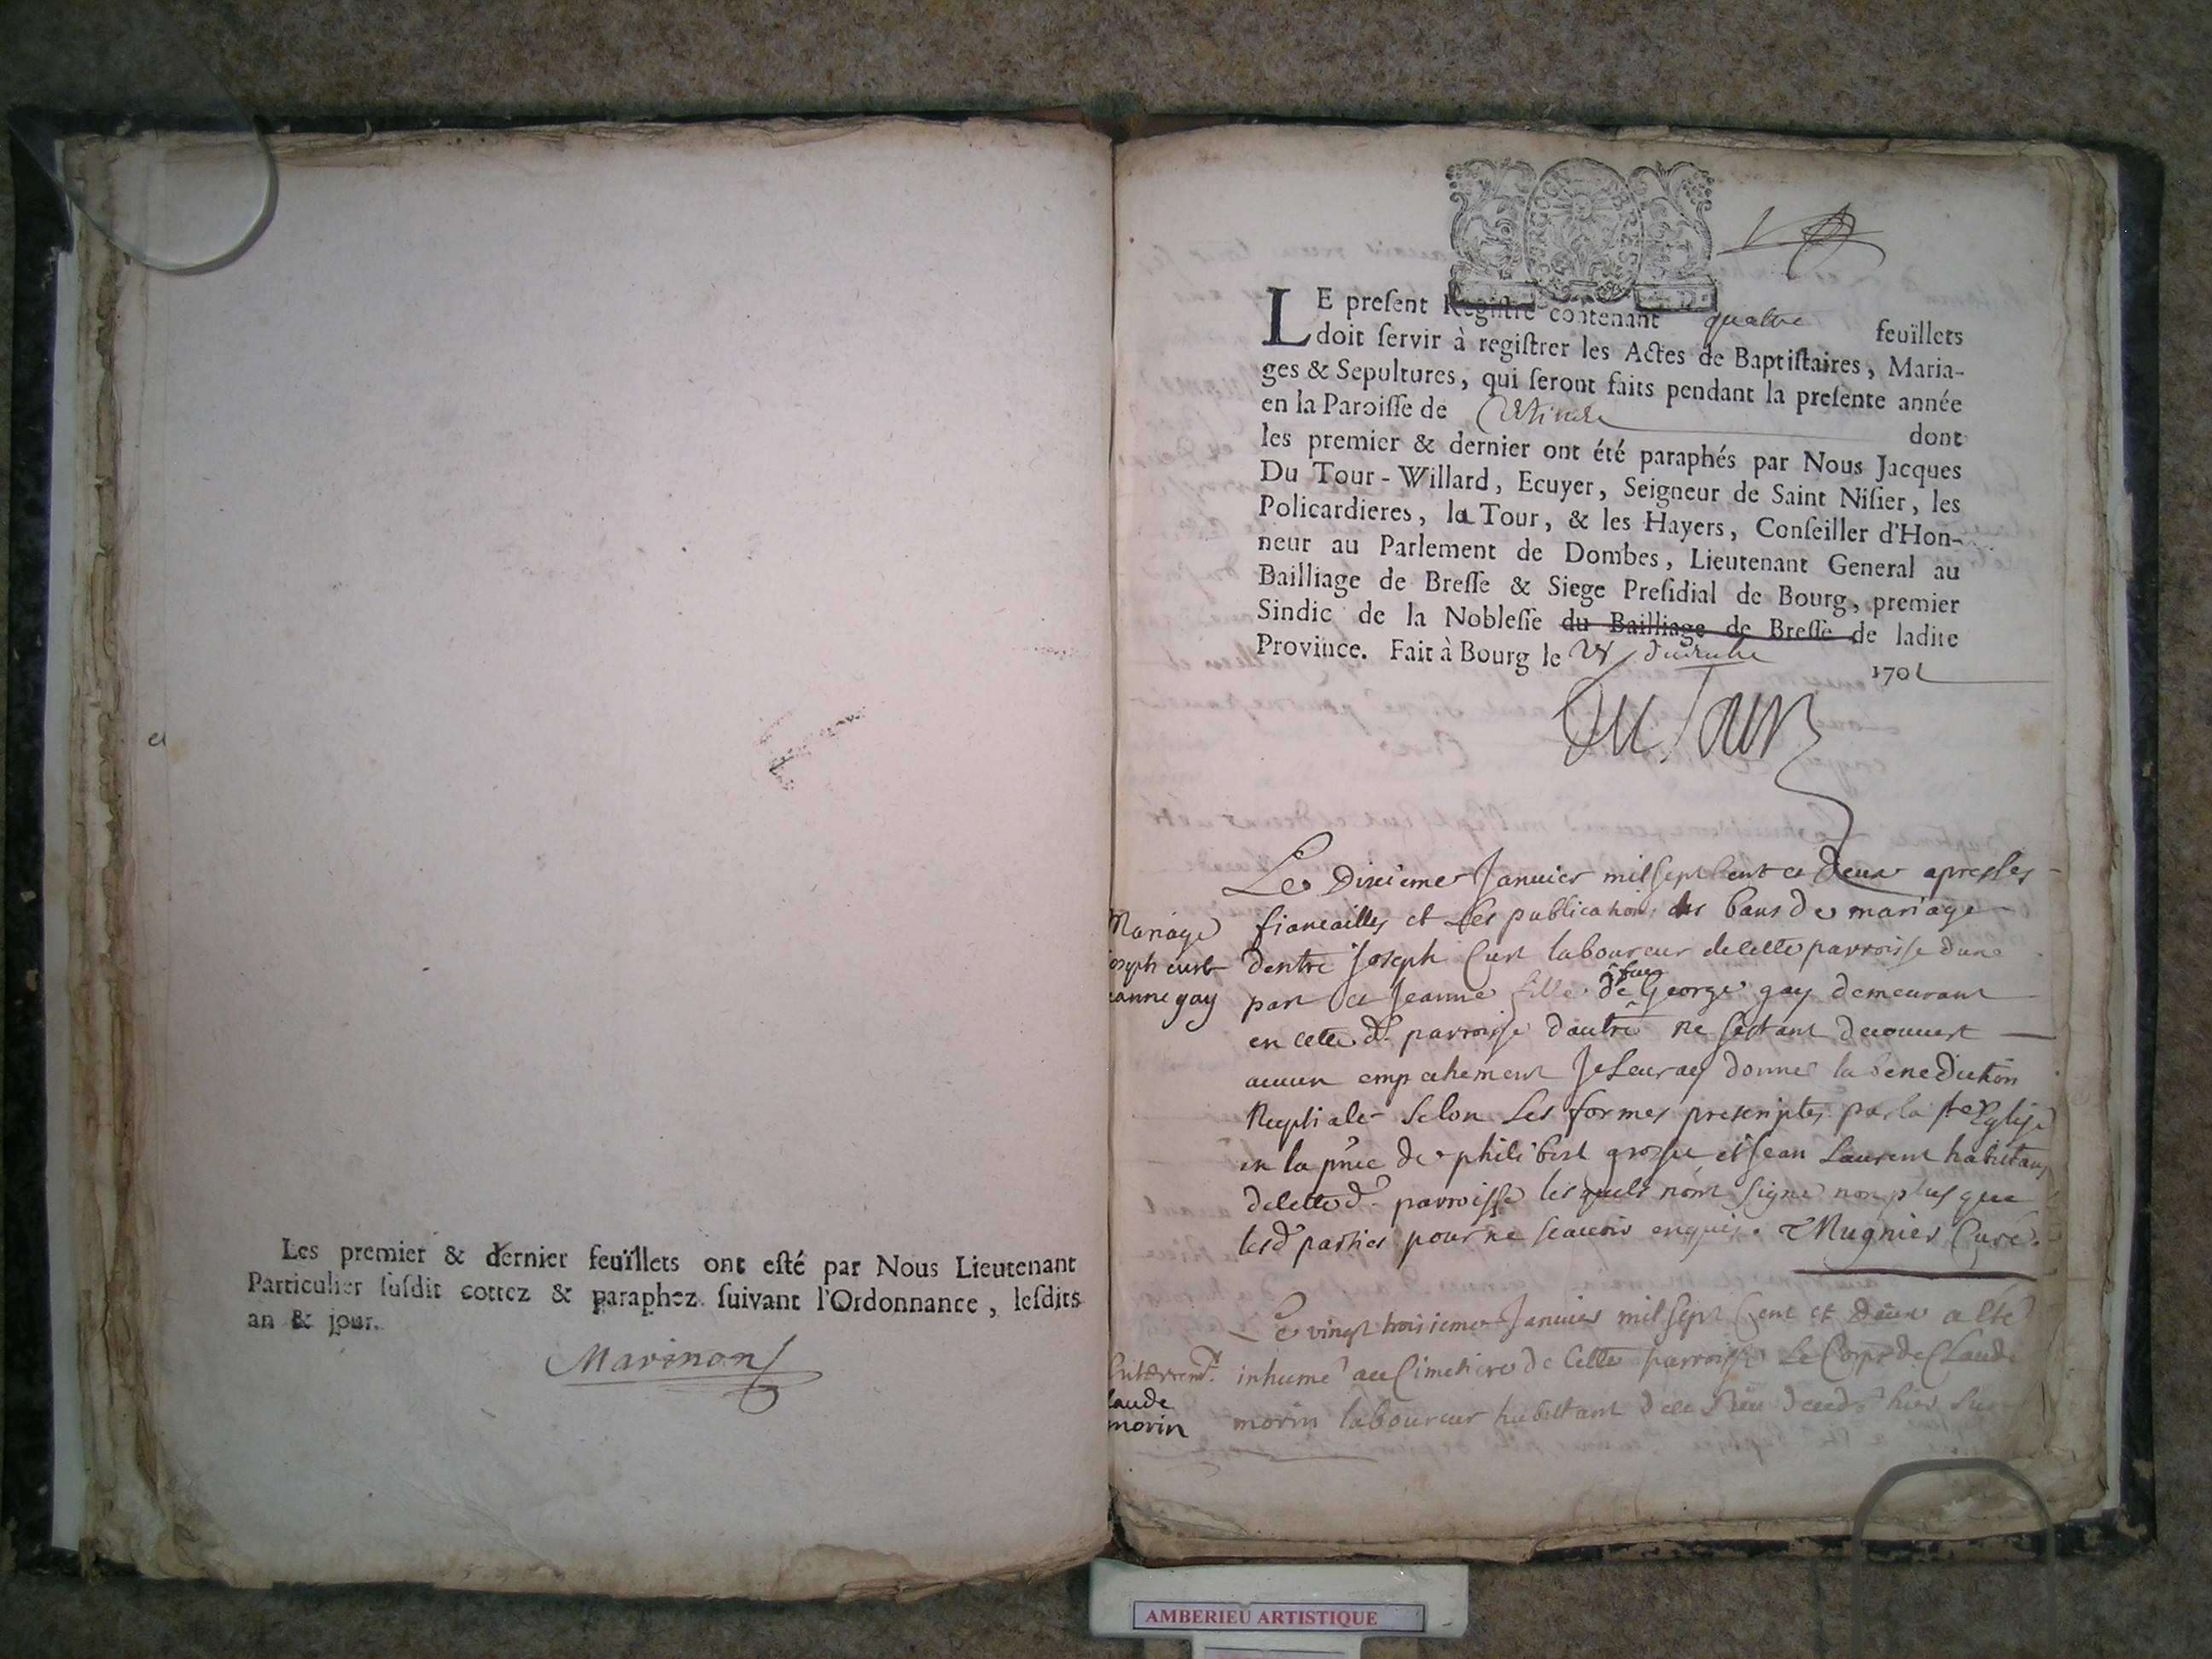 Les premier & dernier feuïllets ont esté par Nous Lieutenant
Particulier susdit cottez & paraphez suivant l'Ordonnance, lesdits
an & jour.
Marinon
LE present Registre contenant quatre feuïllets
doit servir à registrer les Actes de Baptistaires, Maria-
ges & Sepultures, qui seront faits pendant la presente année
en la Paroisse de dont
les premier & dernier ont été paraphés par Nous Jacques
Du Tour-Willard, Ecuyer, Seigneur de Saint Nisier, les
Policardieres, la Tour, & les Hayers, Conseiller d'Hon-
neur au Parlement de Dombes, Lieutenant General au
Bailliage de Bresse & Siege Presidial de Bourg, premier
Sindic de la Noblesse du Bailliage de Bresse de ladite
Province. Fait à Bourg le 1701
Du Tour
Mariage
joseph curt
jeanne gay
Le Dixieme Januier mil sept Cent et deux apres les
fiancailles et les publications des bans de mariage
dentre Joseph Curt laboureur de cette parroisse dune
part et Jeanne fille de feu George gay demeurant
en cette de parroisse dautre ne sestant decouuert
aucun empechement Je leur ay donné la benediction
Nuptiale selon les formes prescriptes par la ste Eglise
en la pnce de philibert grosse et Jean Laurent habitans
de cette de parroisse lesquels nont signe non plus que
lesd parties pour ne scauoir enquis. Mugnier Curé.
Enterremt.
laude
morin
Le vingt troisieme Januier mil sept Cent et deux a esté
inhumé au Cimetiere de Cette parroisse Le Corps de Claude
morin laboureur habittant hier
AMBERIEU ARTISTIQUE